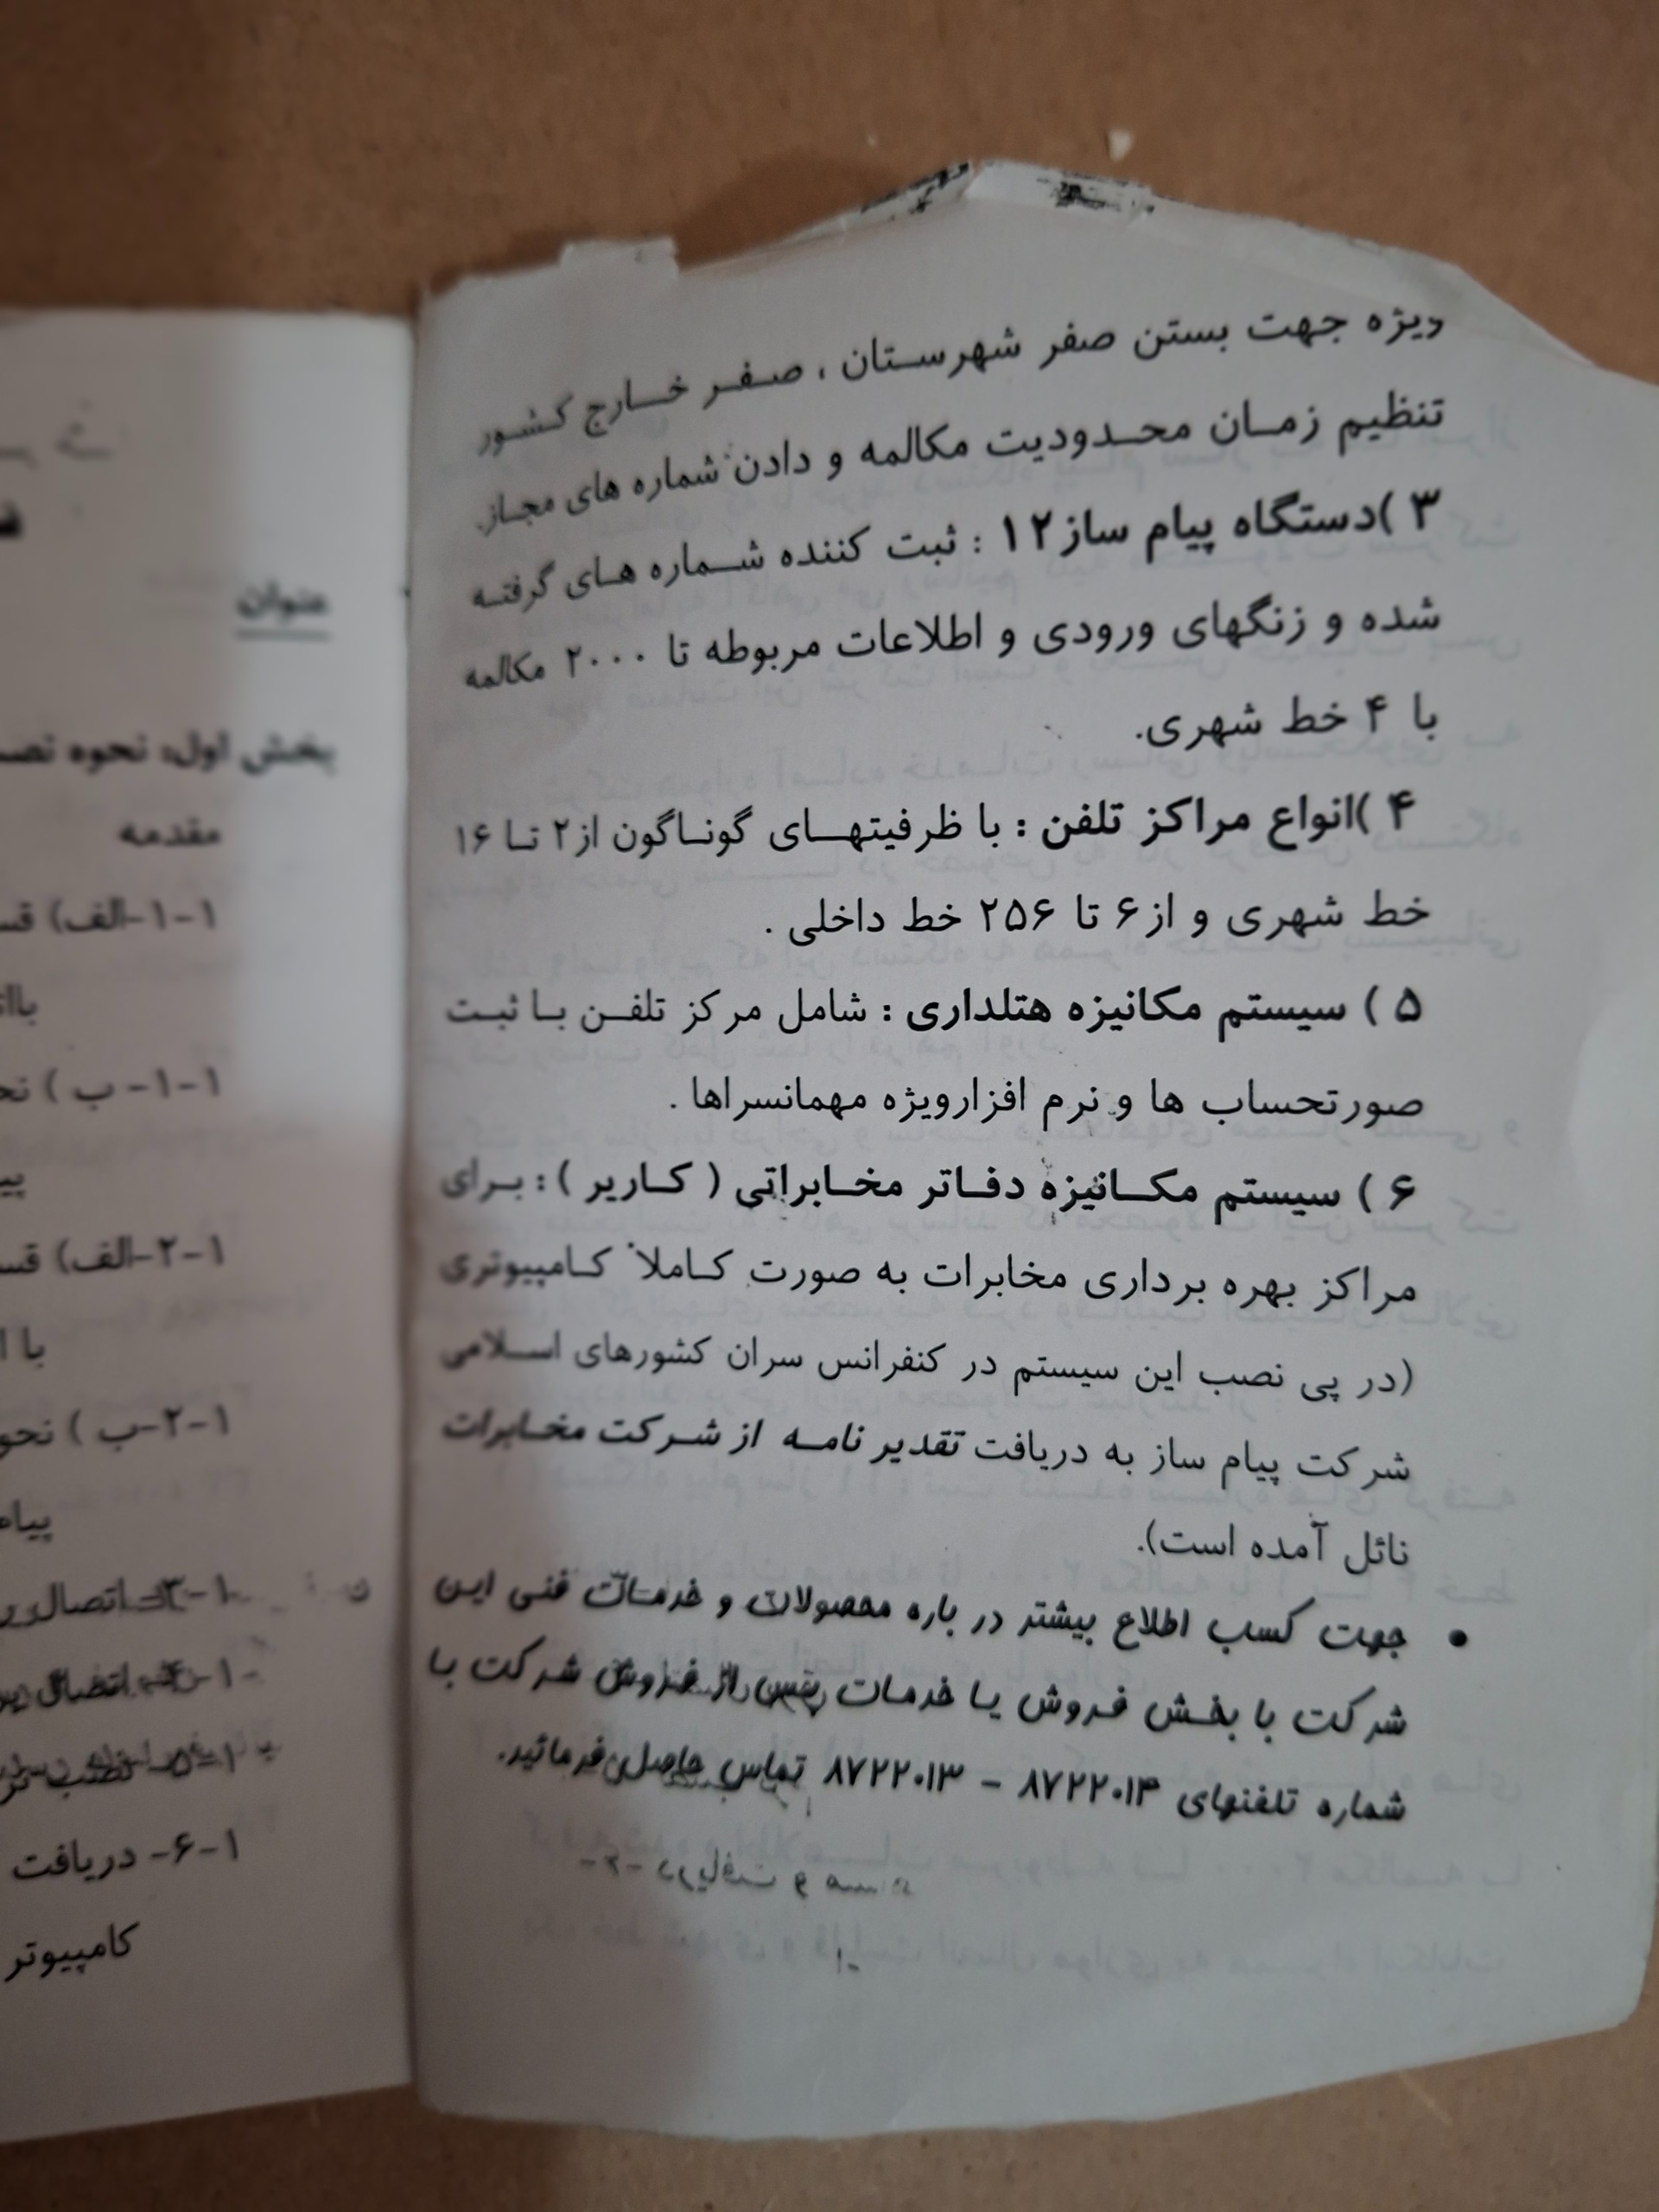 ویژه جهت بستن صفر شهرستان ، صفر خارج کشور
تنظیم زمان محدودیت مکالمه و دادن شماره های مجاز.
۳ )دستگاه پیام ساز۱۲ : ثبت کننده شماره های گرفته
شده و زنگهای ورودی و اطلاعات مربوطه تا ۲۰۰۰ مکالمه
با ۴ خط شهری.
۴ )انواع مراکز تلفن : با ظرفیتهای گوناگون از۲ تا ۱۶
خط شهری و از۶ تا ۲۵۶ خط داخلی .
۵ ) سیستم مکانیزه هتلداری : شامل مرکز تلفن با ثبت
صورتحساب ها و نرم افزارویژه مهمانسراها .
۶ ) سیستم مکانیزه دفاتر مخابراتی ( کاریر ) : برای
مراکز بهره برداری مخابرات به صورت کاملا کامپیوتری
(در پی نصب این سیستم در کنفرانس سران کشورهای اسلامی
شرکت پیام ساز به دریافت تقدیر نامه از شرکت مخابرات
نائل آمده است).
• جهت کسب اطلاع بیشتر در باره محصولات و خدمات فنی این
شرکت با بخش فروش یا خدمات پس از فروش شرکت با
شماره تلفنهای ۸۷۲۲۰۱۴ - ۸۷۲۲۰۱۳ تماس حاصل فرمائید.
عنوان
بخش اول: نحوه
مقدمه
۱-۱-الف)
۱-۱- ب )
۱-۲-الف)
با
۱-۲-ب ) نحو
۱-۳- اتصال
۱-۴- اتصال
۱-۵- نصب
۱-۶- دریافت
کامپیوتر